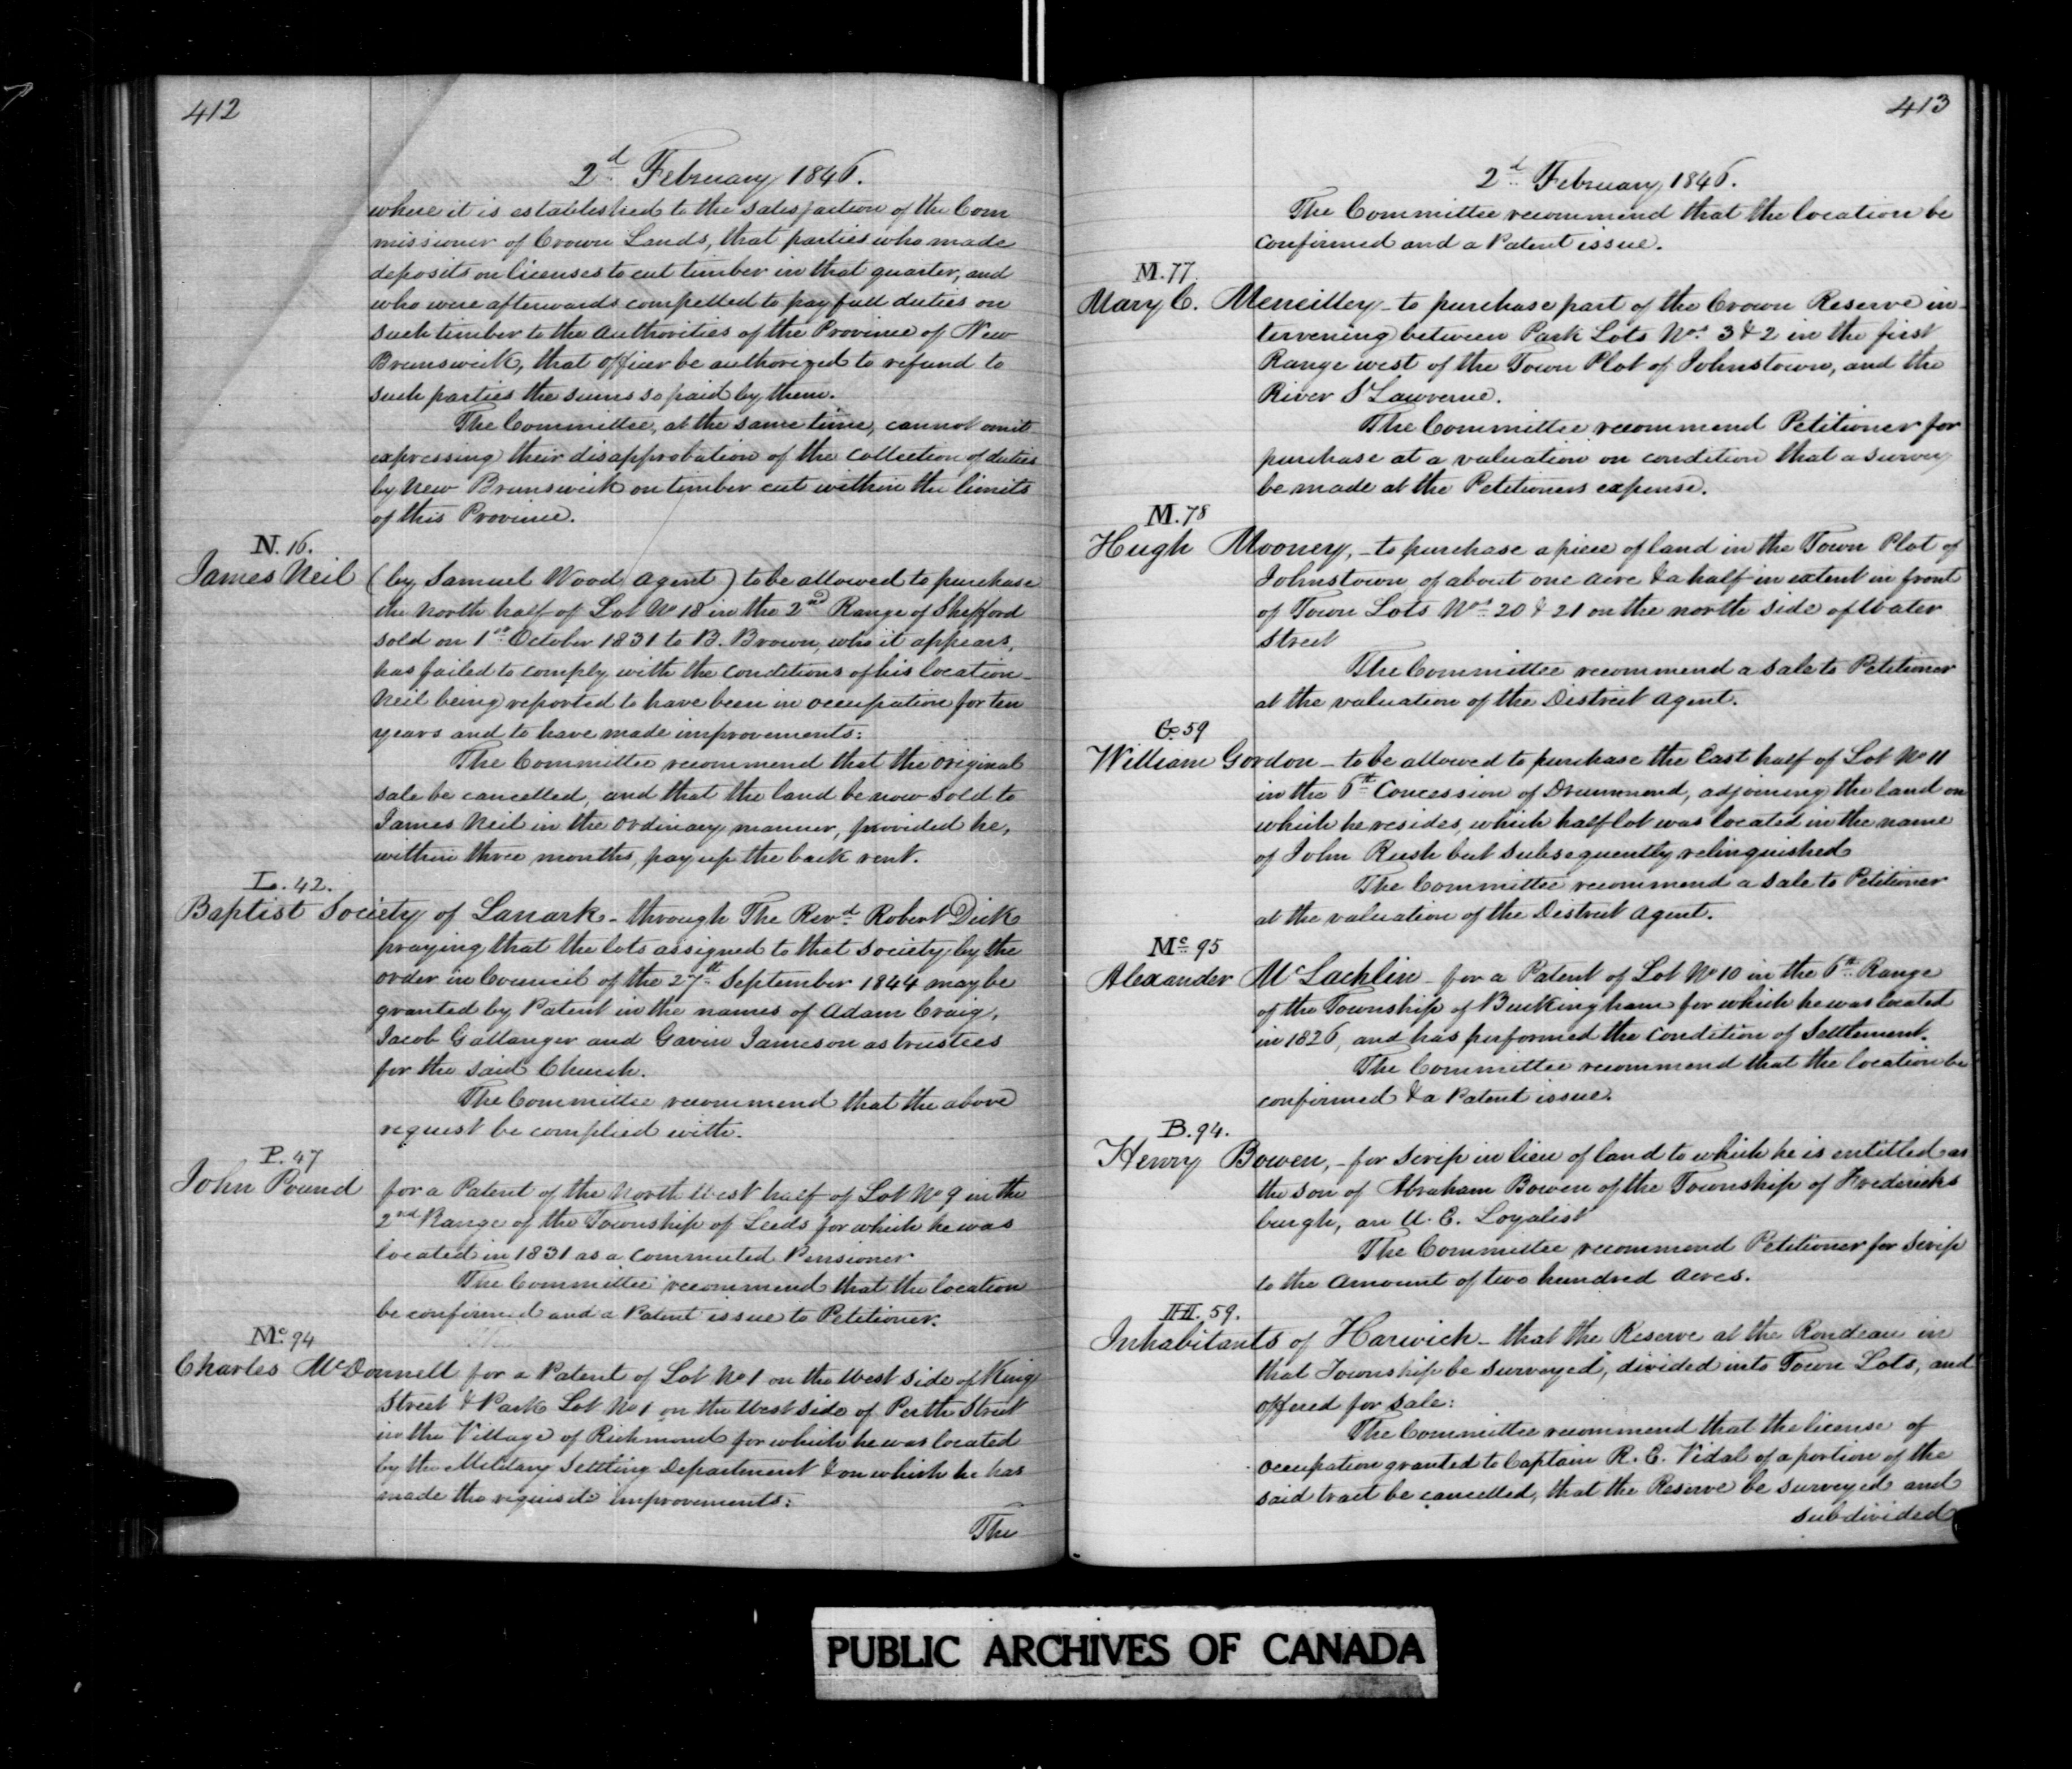 412
2d. February 1846.
where it is established to the satisfaction of the Com
missioner of Crown Lands, that parties who made
deposits on licenses to cut timber in that quarter, and
who were afterwards compelled to pay full duties on
such timber to the authorities of the Province of New
Brunswick, that officer be authorized to refund to
such parties the sums so paid by them.
The Committee, at the same time, cannot omit
expressing their disapprobation of the collection of duties
by New Brunswick on timber cut within the limits
of this Province.
N. 16.
James Neil (by Samuel Wood Agent) to be allowed to purchase
the North half of Lot No 18 in the 2nd Range of Shefford
sold on 1st October 1831 to B. Brown, who it appears,
has failed to comply with the conditions of his location_
Neil being reported to have been in occupation for ten
years and to have made improvements:
The Committee recommend that the original
sale be cancelled, and that the land be now sold to
James Neil in the ordinary manner, provided he,
within three months, pay up the back rent.
L. 42.
Baptist Society of Lanark - through The Revd. Robert Dick
praying that the lots assigned to that Society by the
order in Council of the 27th September 1844 may be
granted by Patent in the names of Adam Craig,
Jacob Gallanger and Gavin Jameson as trustees
for the said Church.
The Committee recommend that the above
request be complied with.
P. 47
John Pound for a Patent of the North West half of Lot No 9 in the
2nd Range of the Township of Leeds for which he was
located in 1831 as a commuted Pensioner
The Committee recommend that the location
be confirmed and a Patent issue to Petitioner.
Mc. 94
Charles McDonnell for a Patent of Lot No 1 on the West side of King
Street & Park Lot No 1 on the West side of Perth Street
in the Village of Richmond for which he was located
by the Military Settling Department & on which he has
made the requisite improvements:
The
413
2d. February 1846.
The Committee recommend that the location be
confirmed and a Patent issue.
M. 77.
Mary C. Meneilley - to purchase part of the Crown Reserve in-
tervening between Park Lots Nos. 3 & 2 in the first
Range west of the Town Plot of Johnstown, and the
River St Lawrence.
The Committee recommend Petitioner for
purchase at a valuation on condition that a survey
be made at the Petitioners expense.
M. 78
Hugh Mooney, - to purchase a piece of land in the Town Plot of
Johnstown of about one acre & a half in extent in front
of Town Lots Nos. 20 & 21 on the north side of Water
Street
The Committee recommend a sale to Petitioner
at the valuation of the District Agent.
G. 59
William Gordon - to be allowed to purchase the East half of Lot No 11
in the 6th Concession of Drummond, adjoining the land on
which he resides, which half lot was located in the name
of John Rush but subsequently relinquished
The Committee recommend a sale to Petitioner
at the valuation of the District Agent.
Mc. 95
Alexander McLachlin - for a Patent of Lot No 10 in the 6th. Range
of the Township of Buckingham for which he was located
in 1826, and has performed the condition of Settlement.
The Committee recommend that the location be
confirmed & a Patent issue.
B. 94.
Henry Bowen, - for Scrip in lieu of land to which he is entitled as
the son of Abraham Bowen of the Township of Fredericks
burgh, an U. E. Loyalist
The Committee recommend Petitioner for Scrip
to the amount of two hundred acres.
H. 59.
Inhabitants of Harwich - that the Reserve at the Rondeau in
that Township be surveyed, divided into Town Lots, and
offered for sale:
The Committee recommend that the license of
occupation granted to Captain R. E. Vidal of a portion of the
said tract be cancelled, that the Reserve be surveyed and
subdivided
PUBLIC ARCHIVES OF CANADA